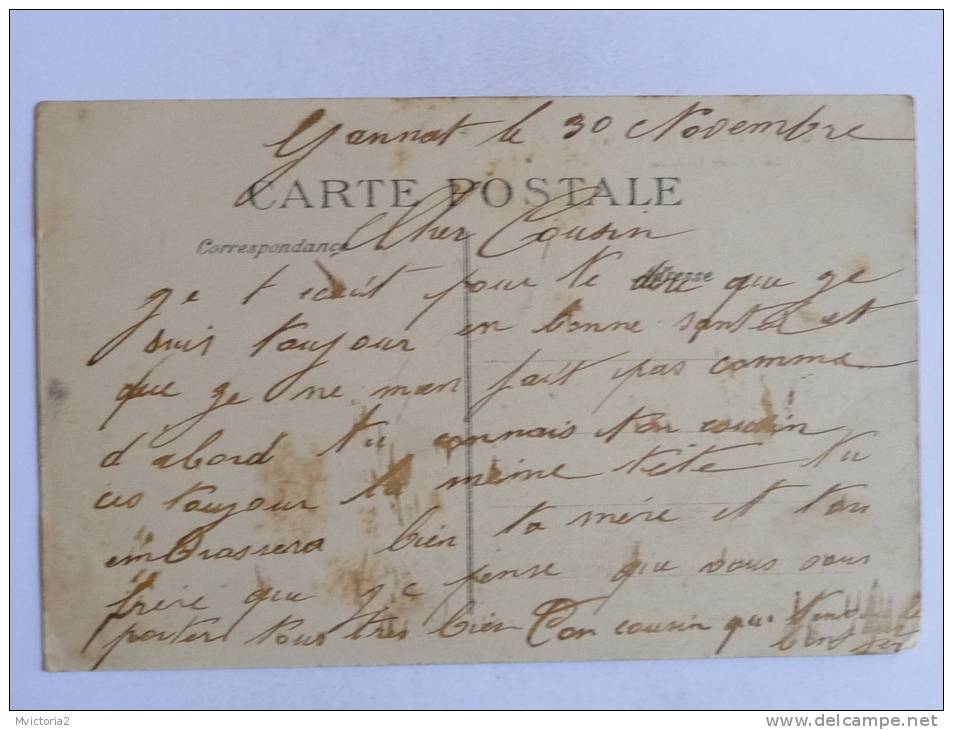 Gannat le 30 Novembre
CARTE POSTALE
Correspondance
Cher Cousin
Adresse
ge t ecrit pour te dire que ge
suis toujour en bonne santée et
que ge ne man fait pas comme
d'abord tu connais ton cousin
ces toujour la même tête tu
embrassera bien ta mére et ton
frère que ge pense que vous vous
porter tous très bien Ton cousin qui
Mvictoria2
www.delcampe.net